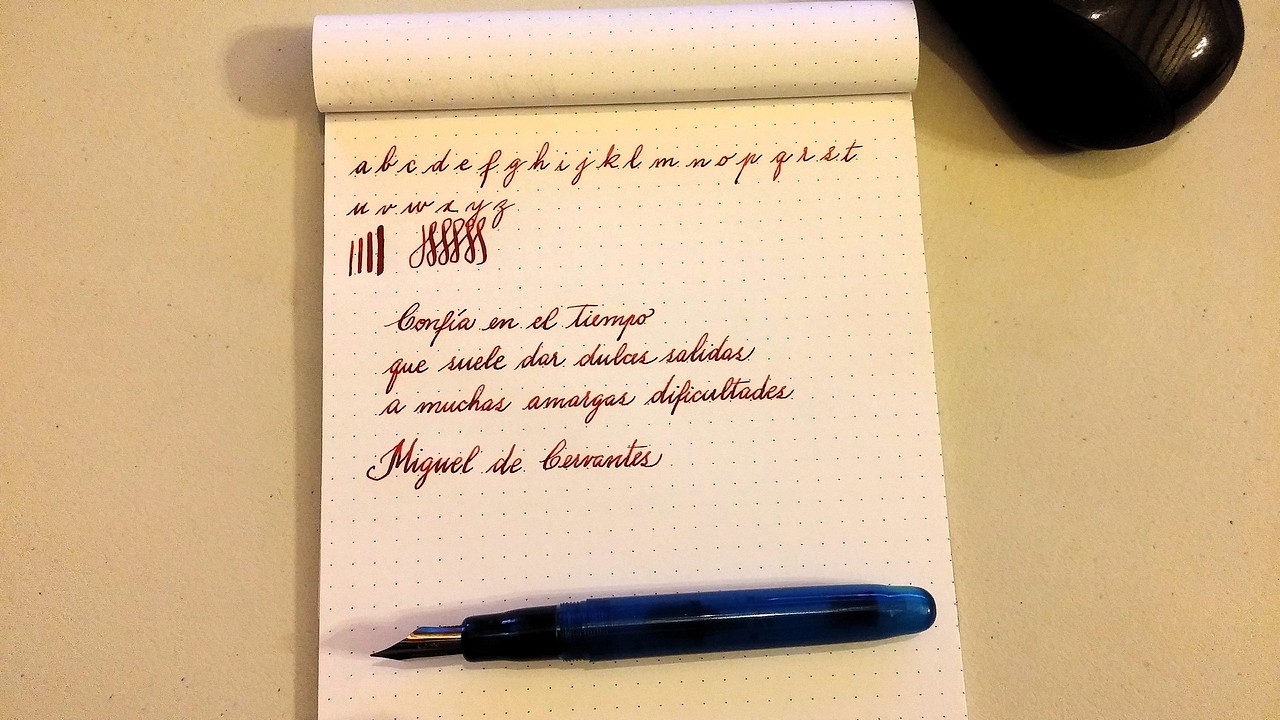 a b c d e f g h i j k l m n o p q r s t
u v w x y z
Confía en el tiempo
que suele dar dulces salidas
a muchas amargas dificultades
Miguel de Cervantes